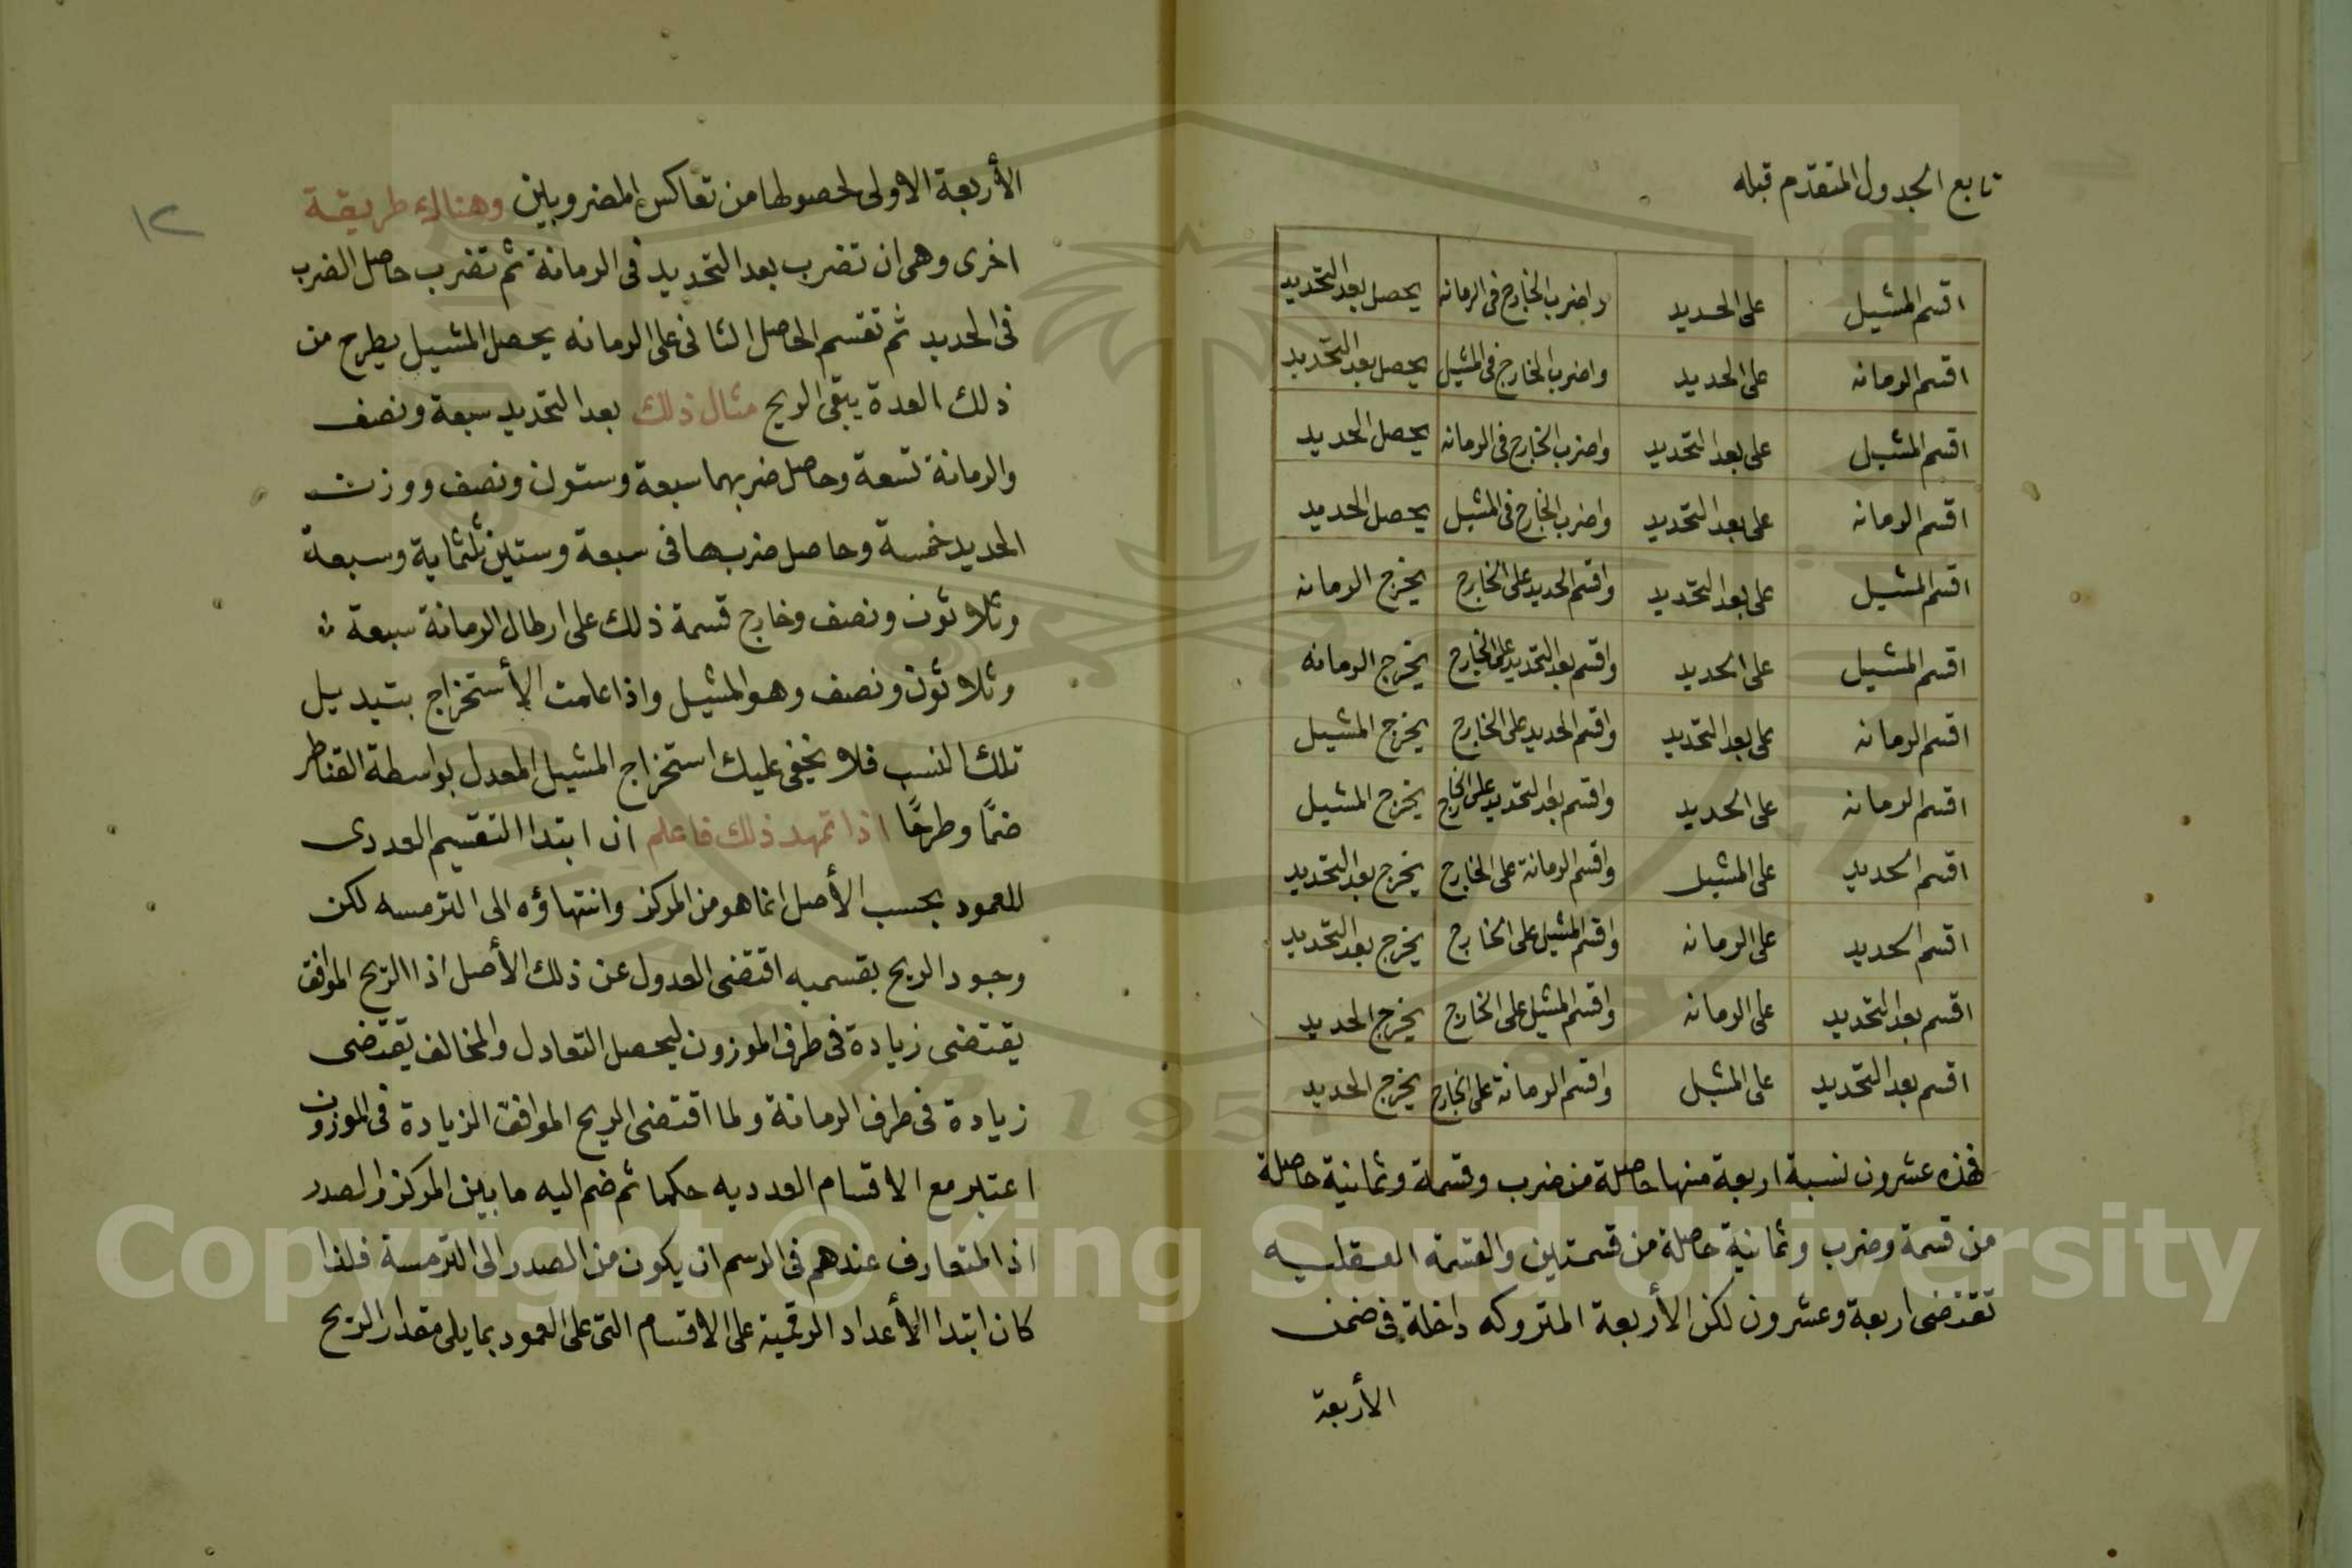 تابع الجدول المتقدم قبله
اقسم المشيل على الحديد واضرب الخارج فى الرمانه يحصل بعد التحديد
اقسم الرمانه على الحديد واضرب الخارج فى المشيل يحصل بعد التحديد
اقسم المشيل على بعد التحديد واضرب الخارج فى الرمانه يحصل الحديد
اقسم الرمانه على بعد التحديد واضرب الخارج فى المشيل يحصل الحديد
اقسم المشيل على بعد التحديد واقسم الحديد على الخارج يخرج الرمانه
اقسم المشيل على الحديد واقسم بعد التحديد على الخارج يخرج الرمانه
اقسم الرمانه على بعد التحديد واقسم الحديد على الخارج يخرج المشيل
اقسم الرمانه على الحديد واقسم بعد التحديد على الخارج يخرج المشيل
اقسم الحديد على المشيل واقسم الرمانة على الخارج يخرج بعد التحديد
اقسم الحديد على الرمانه واقسم المشيل على الخارج يخرج بعد التحديد
اقسم بعد التحديد على الرمانه واقسم المشيل على الخارج يخرج الحديد
اقسم بعد التحديد على المشيل واقسم الرمانة على الخارج يخرج الحديد
فهذه عشرون نسبة اربعة منها حاصلة من ضرب وقسمة وثمانية حاصلة
من قسمة وضرب وثمانية حاصلة من قسمتين والقسمة العقليه
تقتضى اربعة وعشرون لكن الأربعة المتروكه داخلة فى ضمن
الأربعة
١٢
الأربعة الاولى لحصولها من تعاكس المضروبين وهناك طريقة
اخرى وهى ان تضرب بعد التحديد فى الرمانة ثم تضرب حاصل الضرب
فى الحديد ثم تقسم الحاصل الثانى على الرمانه يحصل المشيل يطرح من
ذلك العدة يبقى الريح مثال ذلك بعد التحديد سبعة ونصف
والرمانة تسعة وحاصل ضربهما سبعة وستون ونصف ووزنت
الحديد خمسة وحاصل ضربها فى سبعة وستين ثلثماية وسبعة
وثلاثون ونصف وخارج قسمة ذلك على ارطال الرمانة سبعة
وثلاثون ونصف وهو المشيل واذا علمت الأستخراج بتبديل
تلك النسب فلا يخفى عليك استخراج المشيل المعدل بواسطة القناطر
ضمًا وطرحًا اذا تمهد ذلك فاعلم ان ابتدا التقسيم العددى
للعمود بحسب الأصل انما هو من المركز وانتهاؤه الى الترمسه لكن
وجود الريح بقسميه اقتضى العدول عن ذلك الأصل اذ الريح الموافق
يقتضى زيادة فى طرف الموزون ليحصل التعادل والمخالف يقتضى
زيادة فى طرف الرمانة ولما اقتضى الريح الموافق الزيادة فى الموزون
اعتبر مع الاقسام العدديه حكما ثم ضم اليه ما بين المركز والصدر
اذ المتعارف عندهم فى الرسم ان يكون من الصدر الى الترمسة فلذا
كان ابتدا الأعداد الرقمية على الاقسام التى على العمود بما يلى مقدار الريح
Copyright © King Saud University
1957